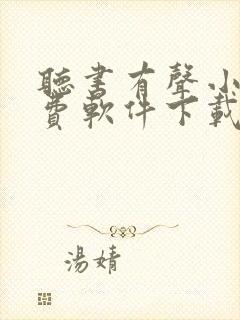 聽書有聲小
費軟件下載
湯婧